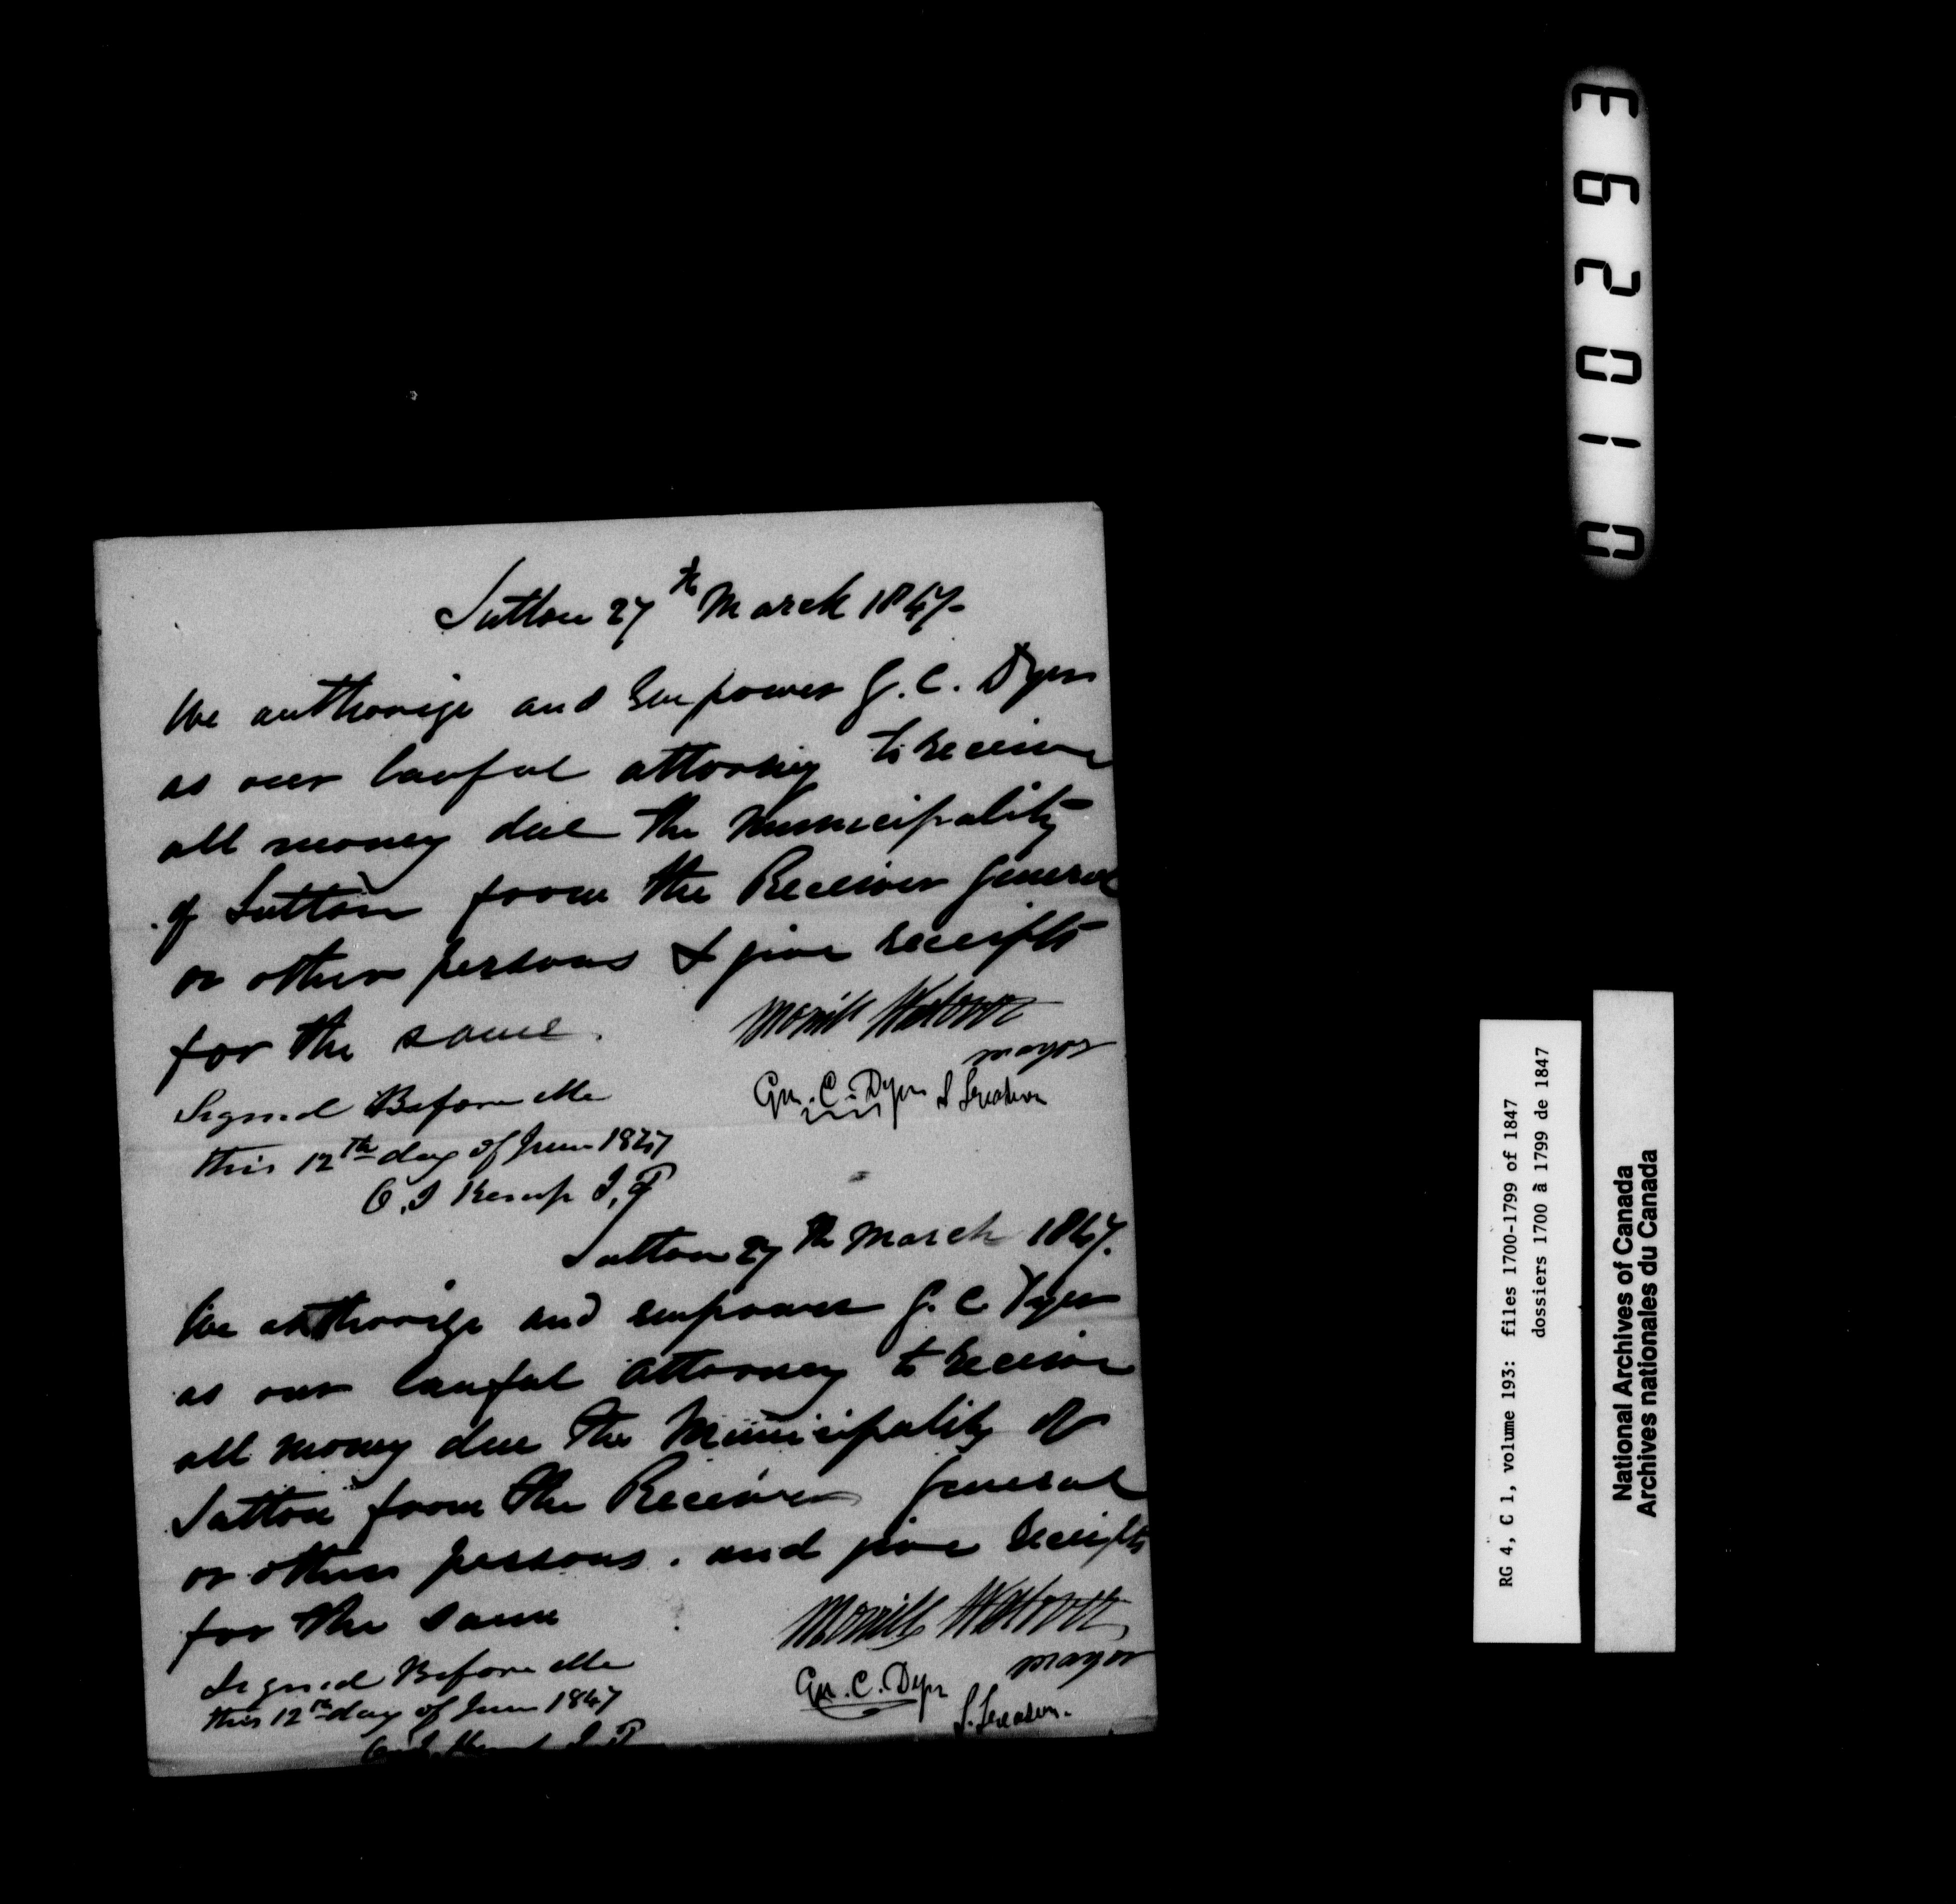 Sutton 27th March 1847-
We authorize and Empower G. C. Dyer
as our lawful attorney to receive
all money due the Municipality
of Sutton from the Receiver General
or other persons & give receipts
for the same.
Mayor
Geo. C. Dyer
Signed Before Me
this 12th day of June 1847
O. J Kemp J, P
Sutton 27th March 1847.
We authorize and empower G. C. Dyer
as our lawful attorney to receive
all money due the Municipality of
Sutton from the Receiver General
or other persons. and give receipts
for the same
mayor
Geo. C. Dyer
Signed Before Me
this 12th day of June 1847
J. P
010293
RG 4, C 1, volume 193: files 1700-1799 of 1847
dossiers 1700 à 1799 de 1847
National Archives of Canada
Archives nationales du Canada